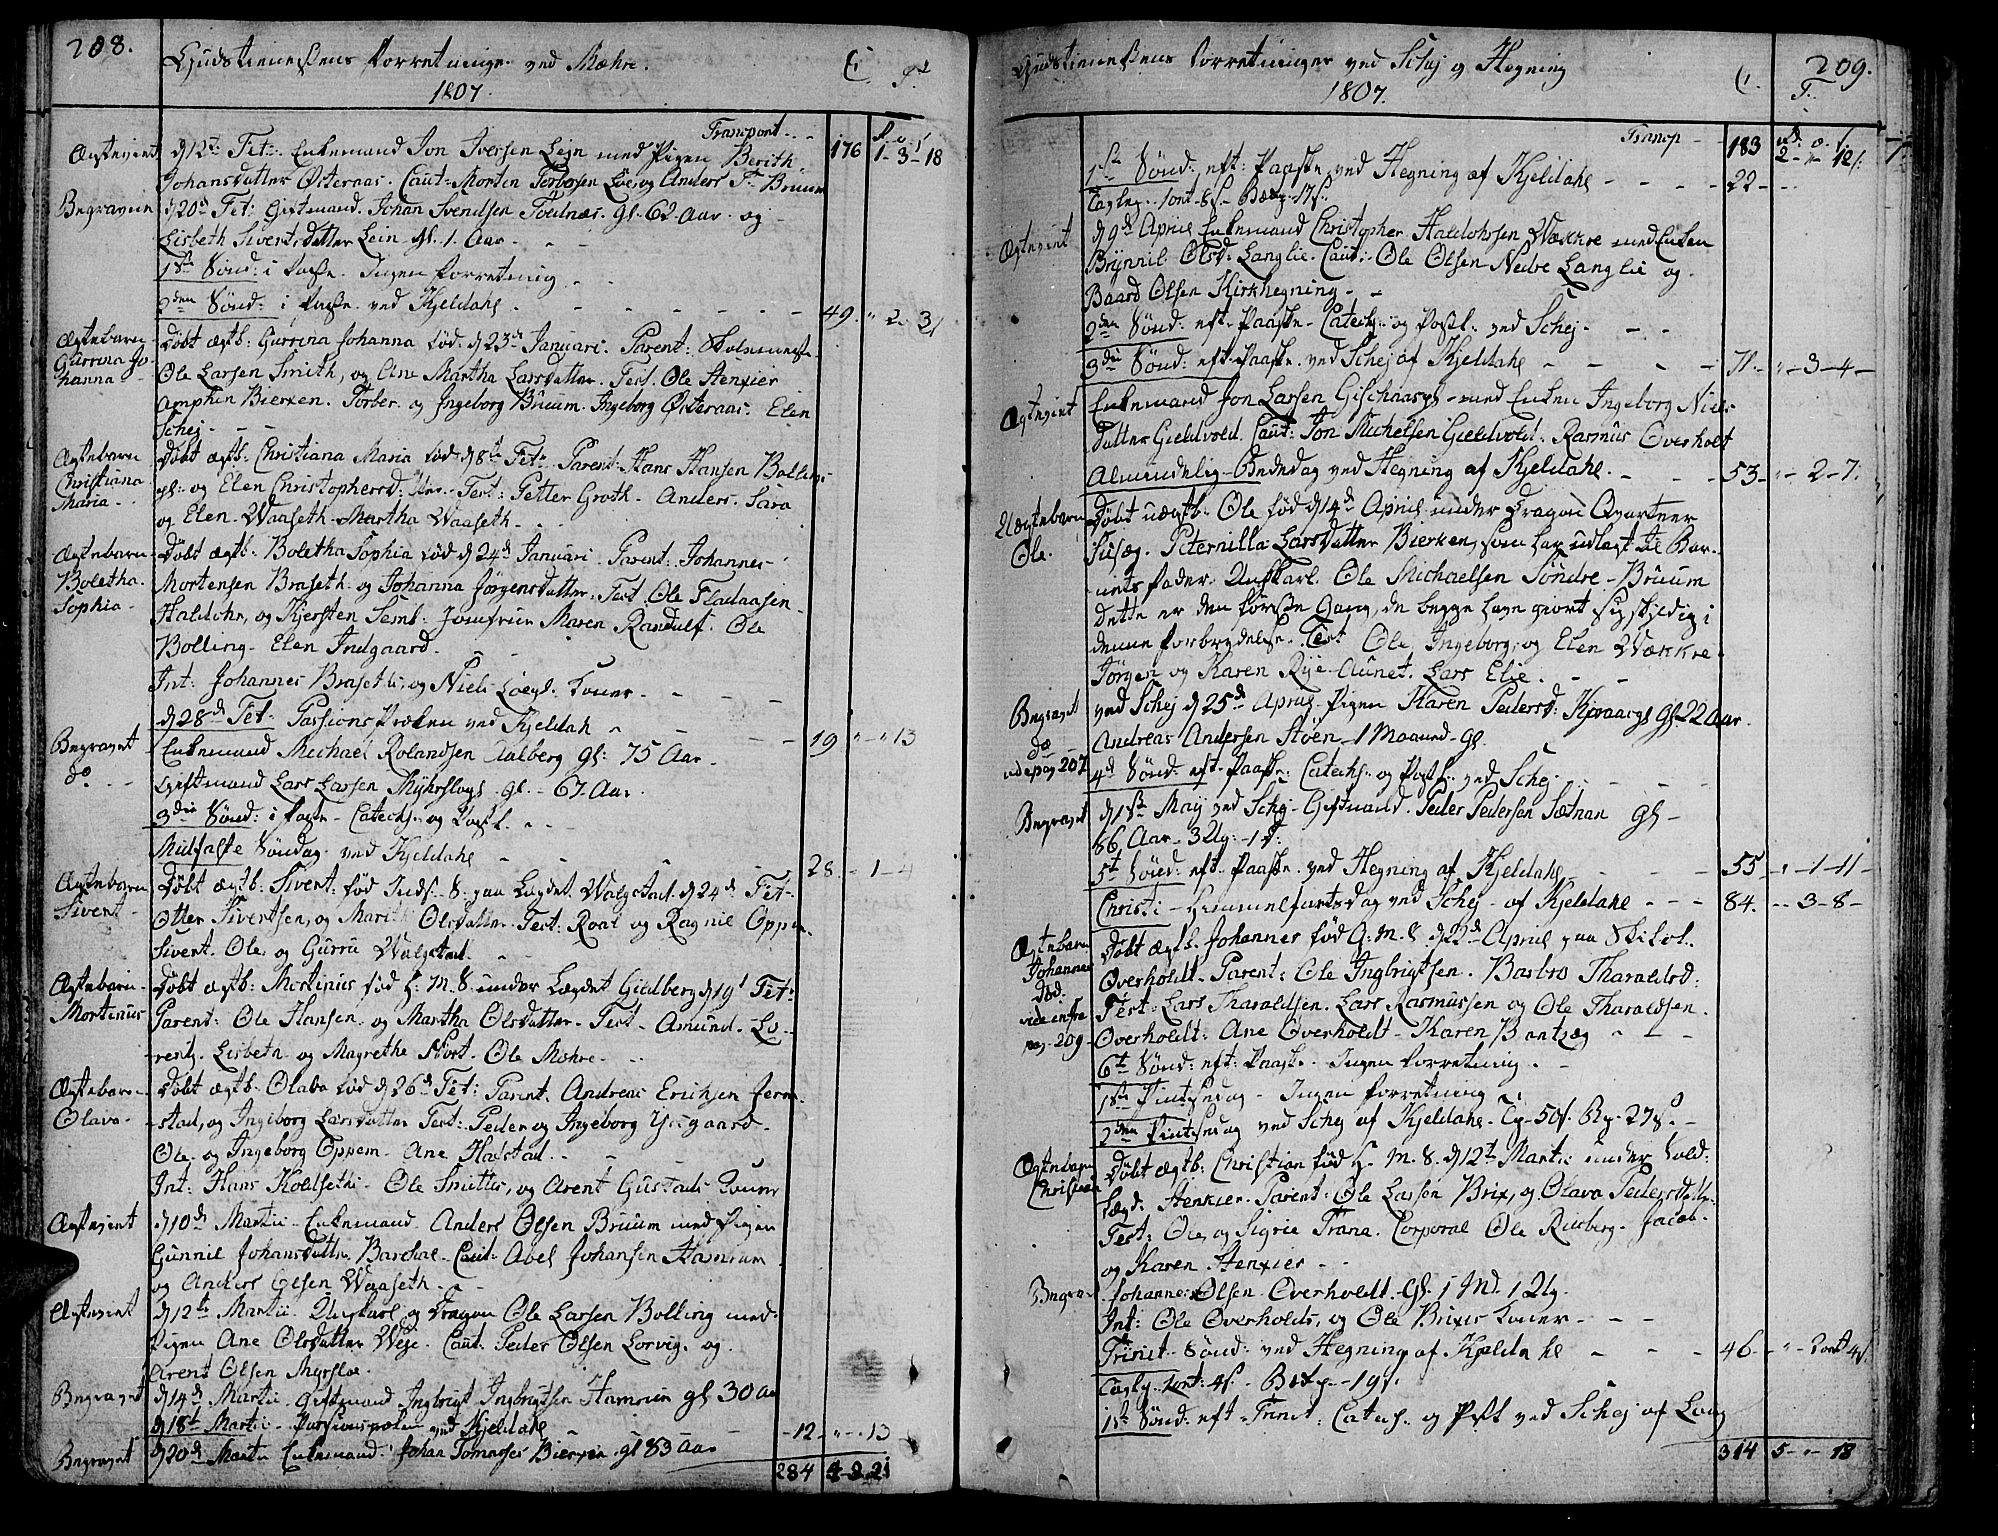 208.
Gudstienestens Forretninger ved Mæhre.
1807.
C.
T.
Transport
176
1 - 3 - 18
Ægteviet
d 12te Febr: Enkemand Jon Iversen Lein med Pigen Berith
Johansdatter Østeraas. Caut: Morten Torbersen Løe, og Anders T. Bruum
Begraven
d 20d Febr: Giftmand Johan Svendsen Toldnæs. gl. 62 Aar. og
Lisbeth Sivertsdatter Lein gl. 1. Aar.
1ste Sønd: i Faste. Ingen Forretning
2den Sønd: i Faste ved Kjeldahl
49. " 2. 3
Ægtebarn
Gurrina Jo
hanna
Døbt ægtb: Gurrina Johanna fød d 23d Januari. Parent: Skolemester
Ole Larsen Smith, og Ane Martha Larsdatter. Test. Ole Henxier
Amphin Bierken. Torber og Ingeborg Bruum. Ingeborg Østeraas. Elen
Schej
Ægtebarn
Christiana
Maria
Døbt ægtb: Christiana Maria fød d 8de Febr. Parent: Hans Hansen Bolling
gl: og Elen Christophersd: Test: Petter Groth. Anders. Sara
og Elen Waaseth. Martha Waaseth.
Ægtebarn
Boletha
Sophia
Døbt ægtb: Boletha Sophia fød d 24d Januari. Parent: Johannes
Mortensen Braseth og Johanna Jørgensdatter. Test. Ole Fladaasen
Haldohr, og Kjersten Semb. Jomfrue Maren Randulf. Ole
Bolling. Elen Indgaard.
Int: Johannes Braseths, og Niels Koner
d 28d Febr: Passions Præken ved Kjeldahl
19 " - " 13
Begravet
Enkemand Michael Rolandsen Aalberg gl: 75 Aar
do
Giftmand Lars Larsen Myhrslogs gl. 67 Aar.
3die Sønd: i Faste - Catech: og Post.
Midfaste Søndag ved Kjeldahl
28. - 1 - 4
Ægtebarn
Sivert
Døbt ægtb: Sivert fød paa Lægdet Walgstad d 24d Febr.
Otter Sivertsen, og Marith Olsdatter. Test: Roar og Ragnil Oppem
Sivert. Ole, og Gurru Walgstad.
Ægtebarn
Mortinus
Døbt ægtb: Mortinus fød H: M. 8. under Lægdet Gielberg d 19d Febr:
Parent: Ole Hansen og Martha Olsdatter. Test. Amund. Lo-
rents. Lisbeth og Magrethe Nort. Ole Mæhre.
Ægtebarn
Olava
Døbt ægtb. Olava fød d 26d Febr: Parent. Andreas Erichsen Jern
stad, og Ingeborg Larsdatter Test: Peder og Ingeborg Ysegaard
Ole og Ingeborg Oppem. Ane Halstad.
Int: Hans Koldseths - Ole Smiths, og Arent Gustads Koner
Ægteviet
d 10d Martii Enkemand Anders Olsen Bruum med Pigen
Gunnil Johansdatter Barchal. Caut: Abel Johansen Hamrum
og Anders Olsen Waaseth.
Ægteviet
d 12te Martii. Ungkarl og Dragon Ole Larsen Bolling med
Pigen Ane Olsdatter Weje. Caut: Peder Olsen Lorvig. og
Arent Olsen Myrslæ.
Begravet
d 14d Martii Giftmand Ingbrigt Ingbrigtsen Hamrum gl 30 Aar
d 18te Martii - Passionspræken ved Kjeldahl
12 - " - 13
Begravet
d 20d Martii Enkemand Johan Tommesen Bierken gl 83 Aar
284
209.
Gudstienestens Forretninger ved Schej og Hegning
1807.
C.
T.
Transp
183
2 - " - 12
1ste Sønd: eft: Paaske ved Hegning af Kjeldahl
22
Tavlep. 1 ort 8 s. Bækp. 17 s.
Ægteviet
d 9d April Enkemand Christopher Haldohrsen Wækkre med Enken
Brynnil Olsd: Langlie. Caut: Ole Olsen Nedre Langlie og
Baard Olsen Kirkhegning
2den Sønd: eft: Paaske. Catech: og Post. ved Schej
3die Sønd: eft Paaske ved Schej af Kjeldahl
71 - " - 3 - 4
Ægteviet
Enkemand Jon Larsen med Enken Ingeborg Niels
datter Gieldvold. Caut: Jon Michelsen Gieldvold. Rasmus Overholt
Almindelig Bededag ved Hegning af Kjeldahl.
53 - " - 2 - 7.
Uægtebarn
Ole.
Døbt uægtb: Ole fød d 14d April under Dragon Qvarteer
Susæg. Peternilla Larsdatter Bierken, som har udlagt til Bar-
nets Fader Ungkarl Ole Michaelsen Søndre-Bruum
dette er den første Gang, de begge have giort sig skyldig i
denne Forbrydelse. Test Ole, Ingeborg, og Elen Wækkre.
Jørgen og Karen Rye. Aunet. Lars Elie.
Begravet
ved Schej d 25d April Pigen Karen Pedersd: Gl 22 Aar
do
vide pag 207
Andreas Andersen Støen - 1 Maaned gl
4d Sønd: eft Paaske: Catech: og Post. ved Schej
Begravet
d 1ste Maij ved Schej Giftmand. Peder Pedersen Sætnan gl
66 Aar 3 Ug. 1 d:
5t Sønd: eft. Paaske. ved Hegning af Kjeldahl
55 " - 1 - 11
Christi Himmelfartsdag ved Schej - af Kjeldahl
84. - 3 - 8
Ægtebarn
Johannes
Død.
vide infra
pag 209
Døbt ægtb. Johannes fød G: M. 8 d 22d April paa
Overholdt. Parent: Ole Ingbrigtsen. Barbro Tharaldsd:
Test: Lars Tharaldsen. Lars Rasmussen og Ole Tharaldsen
Overholdt: Ane Overholdt. Karen Bantzæg
6te Sønd: eft: Paaske. Ingen Forretning.
1ste Pintsedag. Ingen Forretning
2den Pintsedag ved Schej af Kjeldahl. Tp. 50 s. Bp. 27 s.
Ægtebarn
Christian
Døbt ægtb: Christian fød H. M. 8. d 12te Martii under Sold:
Lægd: Henxier. Parent: Ole Larsen Brix, og Olava Pedersdatter
Test: Ole og Sigrie Trana. Corporal Ole Risberg. Jacob
og Karen Henxier
Begrav
Johannes Olsen Overholdt. Gl. 1 M. 1 Ug.
Int: Ole Overholds, og Ole Brixes Koner
Trinit. Sønd: ved Hegning af Kjeldahl
46 - " - 2 ort 4 s.
Tavlp. 1 ort: 4 s. Bækp. 19 s.
1ste Sønd: eft. Trinit: Catech. og Post ved Schej af Lang
314 5 - " - 18